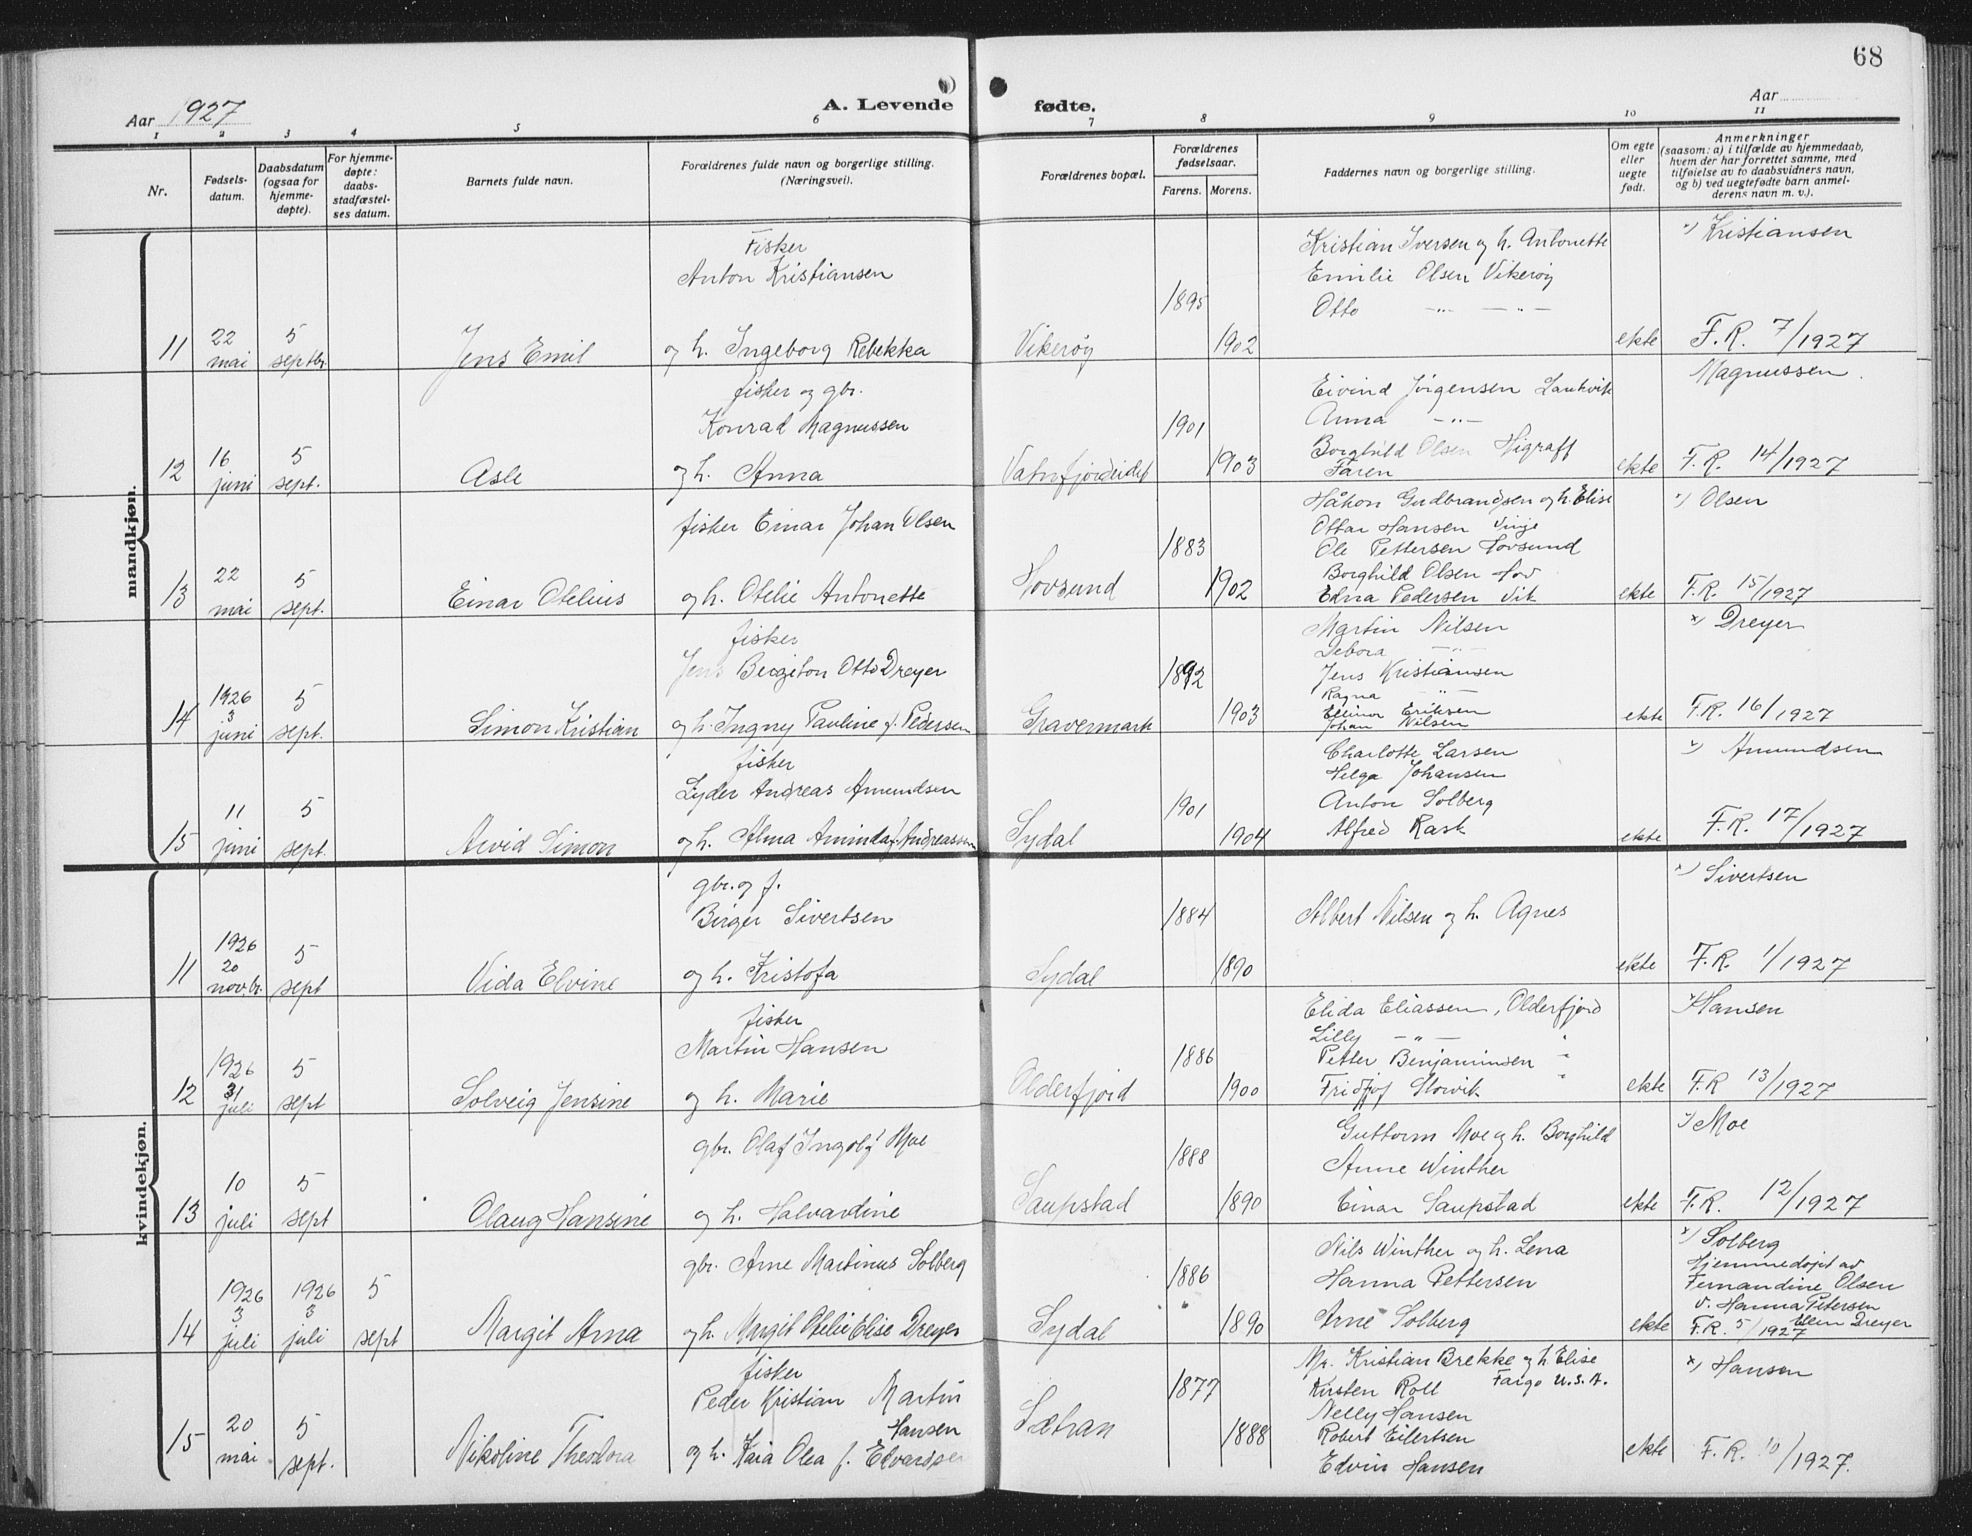 68
Aar 1927
A. Levende fødte.
Aar
1 2 3 4 5 6 7 8 9 10 11
Nr.
Fødsels-
datum.
Daabsdatum
(ogsaa for
hjemme-
døpte).
For hjemme-
døpte:
daabs-
stadfæstel-
ses datum.
Barnets fulde navn.
Forældrenes fulde navn og borgerlige stilling.
(Næringsvei).
Forældrenes bopæl.
Forældrenes
fødselsaar.
Farens. Morens.
Faddernes navn og borgerlige stilling.
Om egte
eller
uegte
født.
Anmerkninger
(saasom: a) i tilfælde av hjemmedaab,
hvem der har forrettet samme, med
tilføielse av to daabsvidners navn,
og b) ved uegtefødte barn anmel-
derens navn m. v.).
mandkjøn.
Fisker
Anton Kristiansen
11 22 mai 5 septbr. Jens Emil og h. Ingeborg Rebekka Vikerøy 1895 1902
Kristian Iversen og h. Antonette
Emilie Olsen Vikerøy
Otto -"- -"-
ekte
x) Kristiansen
F.R. 7/1927
fisker og gbr.
Konrad Magnussen
12 16 juni 5 sept. Asle og h. Anna Vatnfjordeidet 1901 1903
Eivind Jørgensen Laukvik
Anna -"-
Borghild Olsen Higraff
Faren
ekte
Magnussen
F.R. 14/1927
fisker Einar Johan Olsen
13 22 mai 5 sept. Einar Otelius og h. Otelie Antonette Hovsund 1883 1902
Håkon Gudbrandsen og h. Elise
Ottar Hansen Vinje
Ole Pettersen Hovsund
Borghild Olsen Hov
Edna Pedersen Vik
ekte
x) Olsen
F.R. 15/1927
fisker
Jens Birgiton Otto Dreyer
14 1926 3 juni 5 sept. Simon Kristian og h. Ingny Pauline f. Pedersen Gravermark 1892 1903
Martin Nilsen
Debora -"-
Jens Kristiansen
Ragna -"-
Ellinor Eriksen
Johan Nilsen
ekte
x) Dreyer
F.R. 16/1927
fisker
Lyder Andreas Amundsen
15 11 juni 5 sept. Arvid Simon og h. Alma Aminda f. Andreassen Sydal 1901 1904
Charlotte Larsen
Helga Johansen
Anton Solberg
Alfred Rask
ekte
x) Amundsen
F.R. 17/1927
kvindekjøn.
gbr. og f.
Birger Sivertsen
11 1926 20 nov.br. 5 sept Vida Elvine og h. Kristofa Sydal 1884 1890
Albert Nilsen og h. Agnes
ekte
x) Sivertsen
F.R. 1/1927
fisker
Martin Hansen
12 1926 31 juli 5 sept Solveig Jensine og h. Marie Olderfjord 1886 1900
Elida Eliassen, Olderfjord
Lilly -"- "
Petter Benjaminsen "
Fridtjof Slowik "
ekte
x) Hansen
F.R 13/1927
gbr. Olaf Ingolf Moe
13 10 juli 5 sept Olaug Hansine og h. Halvardine Saupstad 1888 1890
Guttorm Moe og h. Borghild
Anne Winther
Einar Saupstad
ekte
x) Moe
F.R. 12/1927
gbr. Arne Martinus Solberg
14 1926 3 juli 1926 3 juli 5 sept Margit Arna og h. Margit Otelie Elise Dreyer Sydal 1886 1890
Nils Winther og h. Lena
Hanna Pettersen
Arne Solberg
ekte
x) Solberg
Hjemmedøpt av
Fernandine Olsen
v. Hanna Petersen
F.R. 5/1927 Elen Dreyer
fisker
Peder Kristian Martin
Hansen
15 20 mai 5 sept. Nikoline Theodora og h. Kaia Olea f. Edvardsen Sætran 1877 1888
Mr. Kristian Brekke og h. Elise
Fargo U.S.A.
Kirsten Roll
Nelly Hansen
Robert Eilertsen
Edvin Hansen
ekte
x) Hansen
F.R. 10/1927.